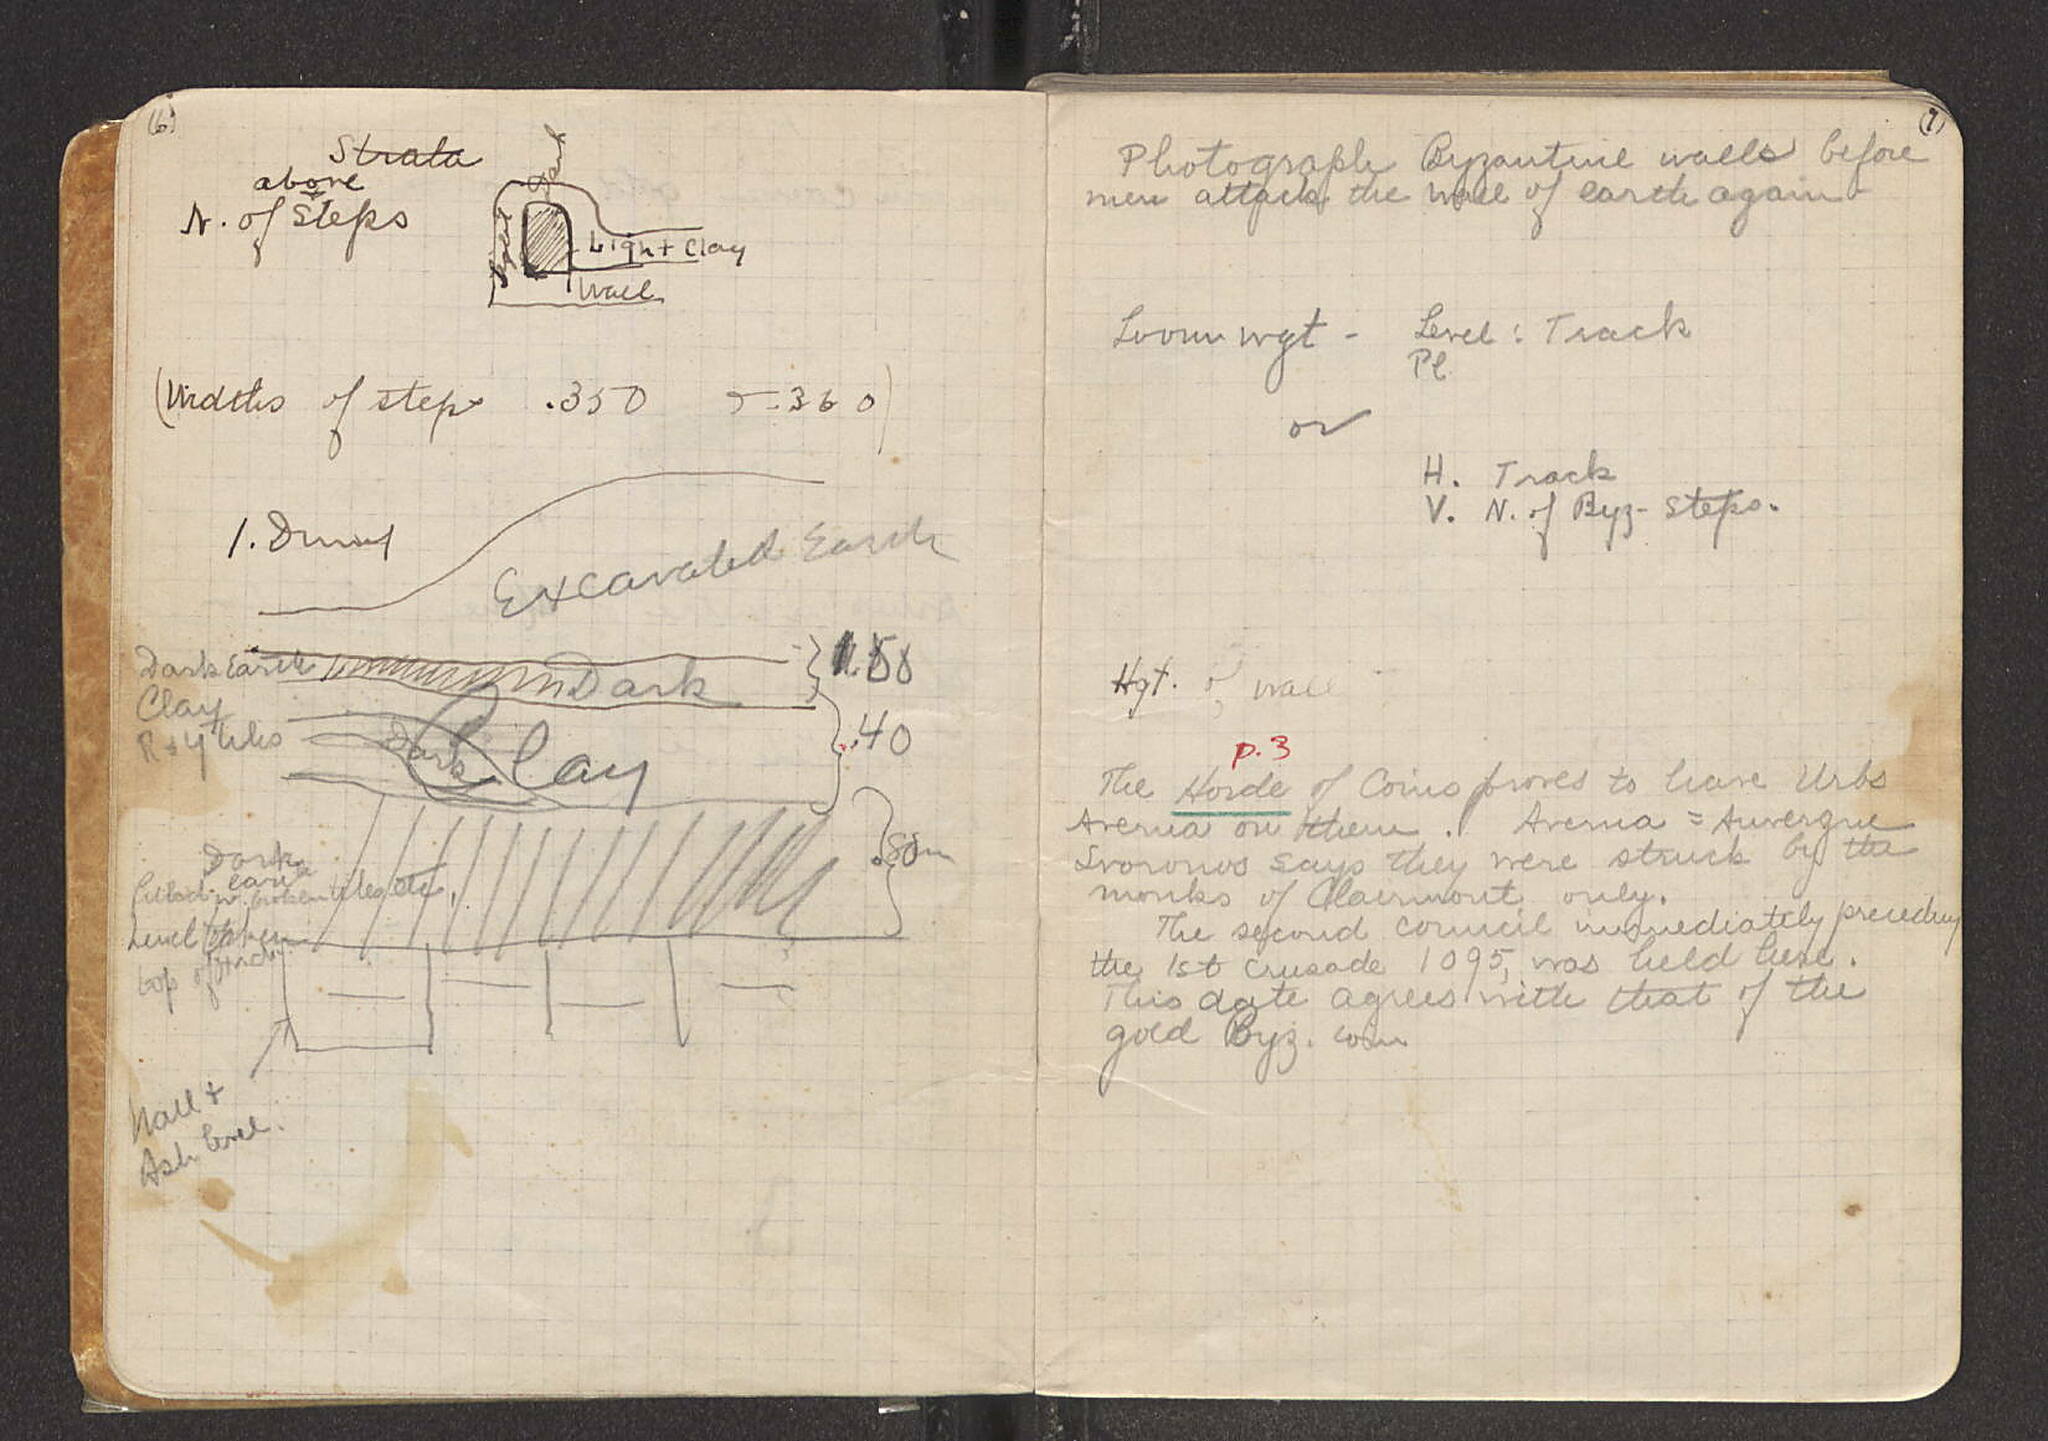 (6)
Strata
above
N. of Steps
Dark
Light Clay
Wall
(Widths of steps .350 – .360)
1. Dump
Excavated Earth
Dark Earth
Dark
.50
Clay
R + Y tiles
Dark
Clay
.40
Dark
earth
filled w. broken tiles etc.
.80m
Level taken
top of
Wall +
Ash level.
(7)
Photograph Byzantine walls before
men attack the wall of earth again
Loom wgt - Level: Track
Pl
or
H. Track
V. N. of Byz. Steps.
Hgt. of wall
p. 3
The Horde of Coins proves to have Urbs
Averna on them. Averna = Auvergne
Svoronos says they were struck by the
monks of Clairmont only.
The second council immediately preceding
the 1st crusade 1095, was held here.
This date agrees with that of the
gold Byz. coin